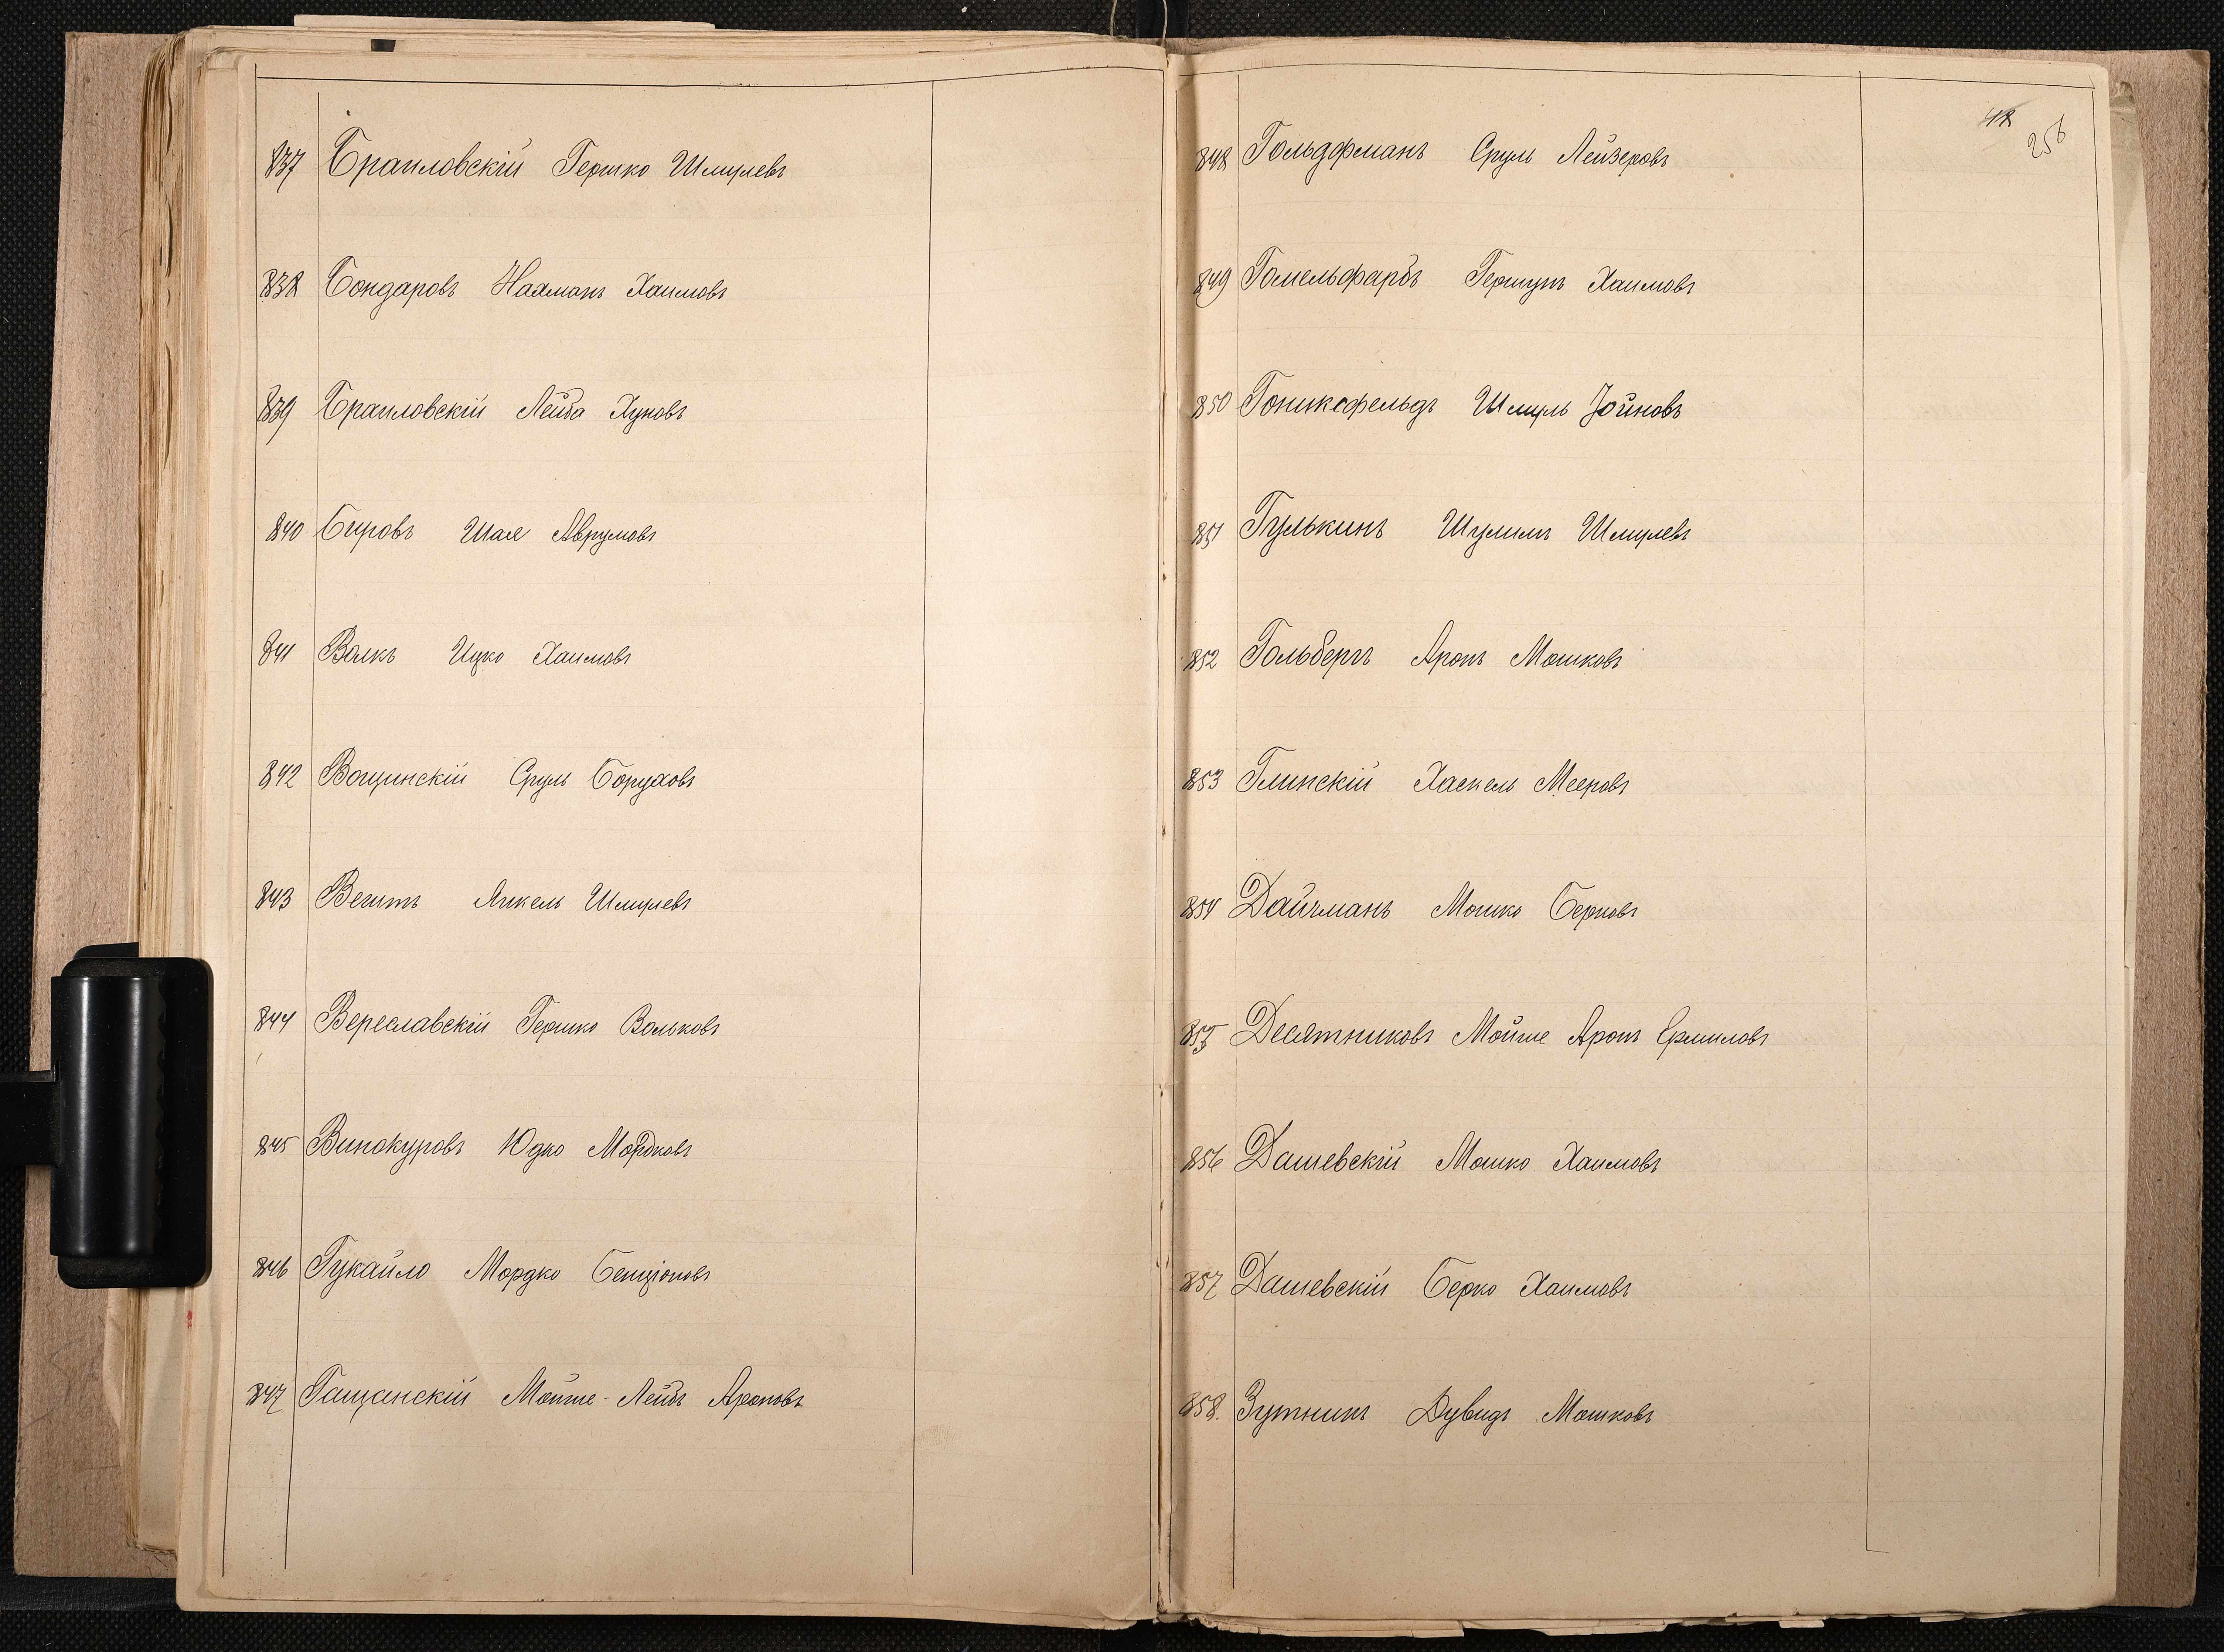 837 Браиловскій Гершко Шмулевъ
838 Бондаровъ Нахманъ Хаимовъ
839 Браиловскій Лейба Хуновъ
840 Бировъ Шая Аврумовъ
841 Волкъ Ицко Хаимовъ
842 Вощинскій Сруль Боруховъ
843 Янкель Шмулевъ
844 Вереславскій Гершко Вольковъ
845 Винокуровъ Юдко Мордковъ
846 Гукайло Мордко Бенціоновъ
847 Гащанскій Мойше-Лейбъ Ароновъ
48
256
848 Гольдфманъ Сруль Лейзеровъ
849 Гомельфарбъ Гершунъ Хаимовъ
850 Гониксфельдъ Шмуль Іойновъ
851 Гулькинъ Шулимъ Шмулевъ
852 Гольбергъ Аронъ Мошковъ
853 Глинскій Хаскель Мееровъ
854 Дайчманъ Мошко Берковъ
855 Десятниковъ Мойше Аронъ Срмиловъ
856 Дашевскій Мошко Хаимовъ
857 Дашевскій Берко Хаимовъ
858. Зутникъ Дувидъ Мошковъ